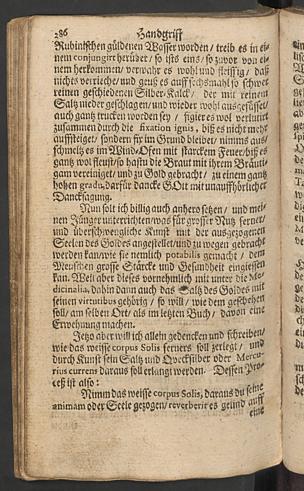 286 Handgriff
Rubintschen güldenen Wasser worden / treib es in ei-
nem conjungirt herüber / so ists eins / so zuvor von ei-
nem herkommen / verwahr es wohl und fleissig / daß
nichts verrieche / und geuß es auff sechsmahl so schwer
reinen geschiedenen Silber-Kalck / der mit reinem
Saltz nieder geschlagen / und wieder wohl ausgesüsset
auch gantz trucken worden sey / figier es wol verlutirt
zusammen durch die fixation ignis, biß es nicht mehr
auffsteiget / sondern fix im Grund bleibet / nimms aus
schmeltz es im Wind-Ofen mit starckem Feuer / biß es
gantz wol fleust / so hastu die Braut mit ihrem Bräuti-
gam vereiniget / und zu Gold gebracht / zu einem gantz
hohen gradu, darfür dancke GOtt mit unauffhörlicher
Dancksagung.
Nun solt ich billig auch anhero setzen / und mei-
nen Jünger unterrichten / was für grosser Nutz ferner /
und überschwengliche Kunst mit der ausgezogenen
Seelen des Goldes angestellet / und zu wegen gebracht
werden kan / wie sie nemlich potabilis gemacht / dem
Menschen grosse Stärcke und Gesundheit eingiessen
kan. Weil aber dieses vornehmlich mit unter die Me-
dicinalia, dahin dann auch das Saltz des Goldes mit
seinen virtutibus gehörig / so will / wie dem geschehen
soll / am selben Ort / als im letzten Buch / davon eine
Erwehnung machen.
Jetzo aber will ich allein gedencken und schreiben /
wie das weisse corpus Solis ferners soll zerlegt / und
durch Kunst sein Saltz und Quecksilber oder Mercu-
rius currens daraus soll erlangt werden. Dessen Pro-
ceß ist also:
Nimm das weisse corpus Solis, daraus du seine
animam oder Seele gezogen / reverberir es gelind auff
eine